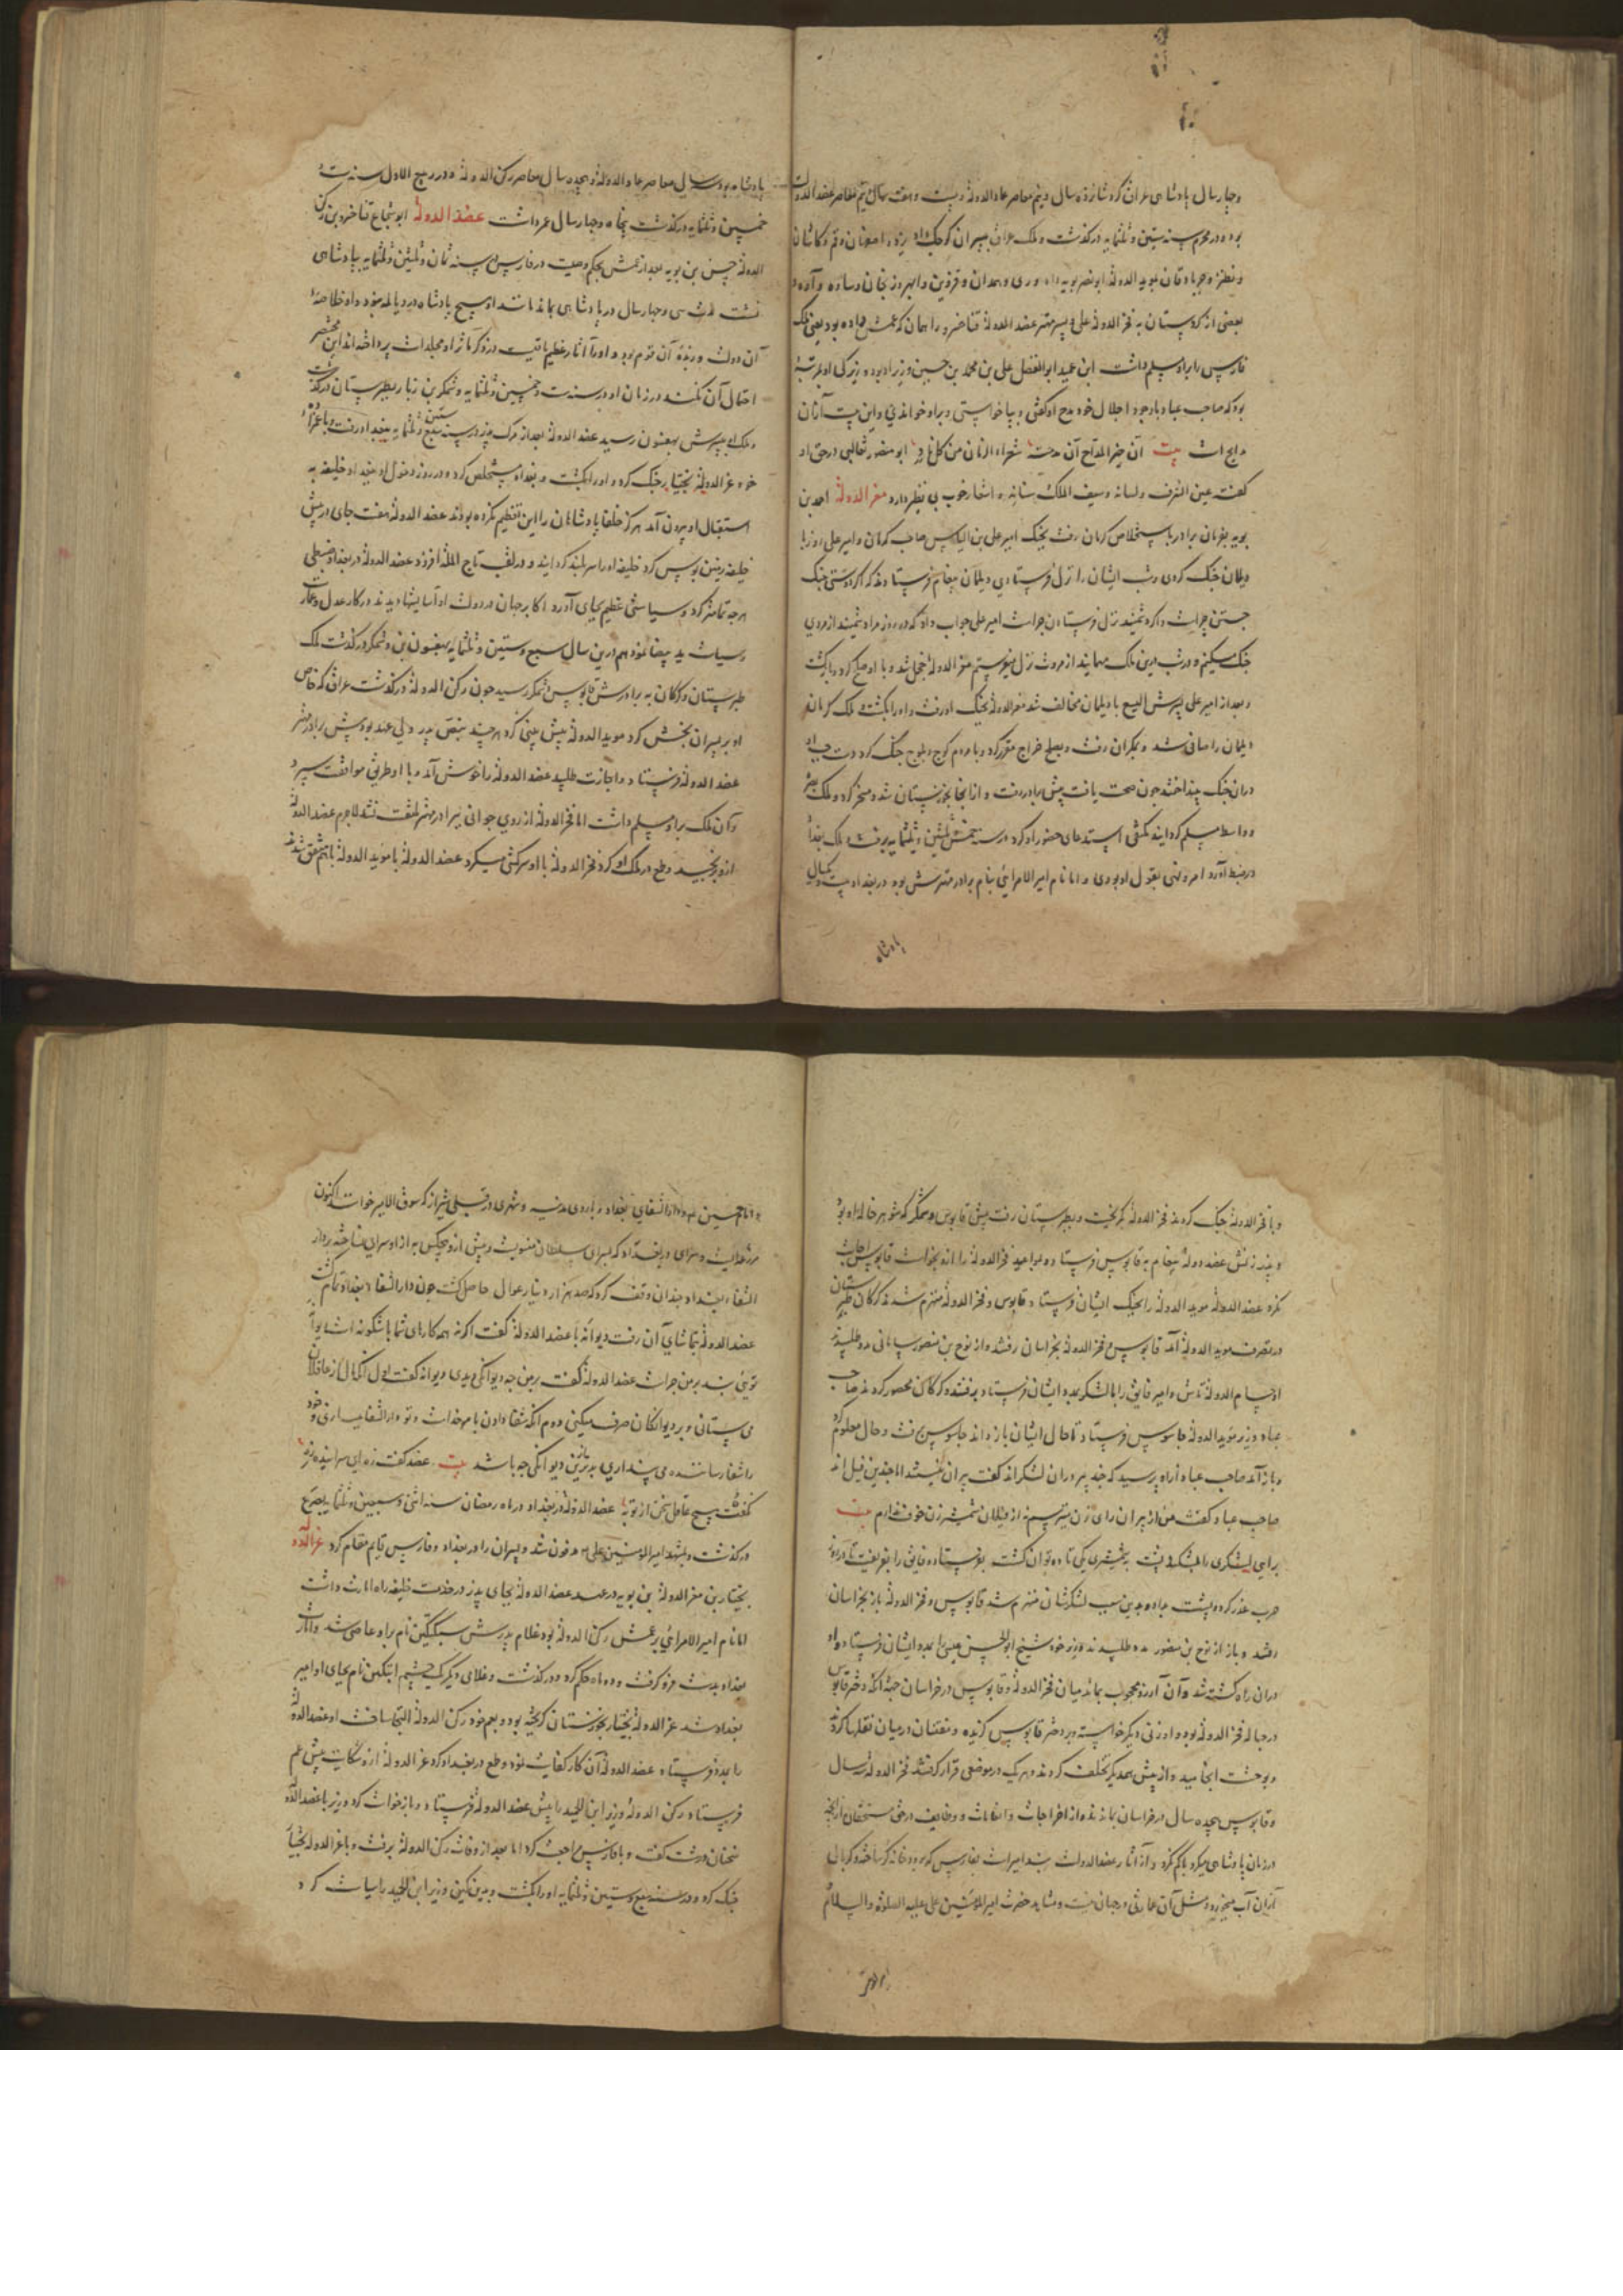 وچهار سال پادشاهی عراق کرد شانزده سال و نیم معاصر عماد الدوله و بیست و هفت سال و نیم معاصر عضد الدوله
بود و در محرم سنه ستین و ثلثمایه درگذشت و ملک عراق بپسران کوچک داد یزد و اصفهان و قم و کاشان
و نطنز و جرباذقان بموید الدوله ابو نصر بویه داد و ری و همدان و قزوین و ابهر و زنجان و ساوه و آوه و
بعضی از کردستان به فخر الدوله علی و پسر مهتر عضد الدوله فناخسرو را همان که عمش داده بود یعنی ملک
فارس را برو مسلم داشت ابن عمید ابو الفضل علی بن محمد بن حسین وزیر او بود و بزرگی او بمرتبهٔ
بود که صاحب عباد با وجود اجلال خود مدح او گفتی و بپا خواستی و برو خواندی و این بیت از آن
مدایح است بیت ابو منصور ثعالبی در حق او
گفته عین الشرف و لسانه و سیف الملک و سنانه و اشعار خوب بی نظیر دارد معز الدوله احمد بن
بویه بفرمان برادر باستخلاص کرمان رفت بجنک امیر علی بن الیاس صاحب کرمان و امیر علی روز با
دیلمان جنک کردی و شب ایشان را نزل فرستادی دیلمان پیغام فرستادند که اگر دوستی جنک
جستن چراست و اگر دشمنید نزل فرستادن چراست امیر علی جواب داد که در روز مرا دشمنید از مردی
جنک میکنم و در شب درین ملک مهمانید از مروت نزل میفرستم معز الدوله خجل شد و با او صلح کرد و بازگشت
و بعد از امیر علی پسرش الیسع با دیلمان مخالف شد معز الدوله بجنک او رفت و او را بکشت و ملک کرمان
دیلمان را صافی شد و بمکران رفت و بصلح خراج مقرر کرد و با مردم کوج و بلوج جنک کرد دست چپ او
در آن جنک بینداختند چون صحت یافت پیش برادر رفت و از آنجا بخوزستان شد و مسخر کرد و ملک بصره
و واسط مسلم گردانید مکتفی استدعای حضور او کرد در سنه خمس و ثلثین و ثلثمایه برفت و ملک بغداد
در ضبط آورد امر و نهی بقول او بودی و اما نام امیر الامرایی بنام برادر مهترش بود در بغداد بیست و یکسال
پادشاه
پادشاه بود سه سال معاصر عماد الدوله و هجده سال معاصر رکن الدوله و در ربیع الاول سنه ست
خمسین و ثلثمایه درگذشت پنجاه و چهار سال عمر داشت عضد الدوله ابو شجاع فناخسرو بن رکن
الدوله حسن بن بویه بعد از عمش بحکم وصیت در فارس در سنه ثمان و ثلثین و ثلثمایه بپادشاهی
نشست مدت سی و چهار سال در پادشاهی بماند مانند او هیچ پادشاه در دیالمه نبود و او خلاصهٔ
آن دولت و زبدهٔ آن قوم بود و او را آثار عظیم باقیست و در ذکر مآثر او مجلدات پرداخته‌اند این مختصر
احتمال آن نکند در زمان او در سنه ست و خمسین و ثلثمایه وشمگیر بن زیار بطبرستان درگذشت
و ملک به پسرش بهستون رسید عضد الدوله بعد از مرگ پدر در سنه سبع و ستین و ثلثمایه ببغداد رفت و با عمزادهٔ
خود عز الدوله بختیار جنک کرد و او را بکشت و بغداد مستخلص کرد و در روز دخول او ببغداد خلیفه به
استقبال او بیرون آمد هرگز خلفا پادشاهان را این تعظیم نکرده بودند عضد الدوله هفت جای در پیش
خلیفه زمین بوس کرد خلیفه او را سربلند گردانید و در لقب تاج المله افزود عضد الدوله در بغداد ضبطی
هرچه تمامتر کرد و سیاستی عظیم بجای آورد اکابر جهان در دولت او آسایشها دیدند در کار عدل و عمارت
و سیاست ید بیضا نمود هم درین سال سبع و ستین و ثلثمایه بهستون بن وشمگیر درگذشت ملک
طبرستان و گرگان به برادرش قابوس وشمگیر رسید چون رکن الدوله درگذشت عراق که خاص
او بر پسران بخش کرد موید الدوله پیش بینی کرد هرچند بنص پدر ولی عهد بود پیش برادر مهتر
عضد الدوله فرستاد و اجازت طلبید عضد الدوله را خوش آمد و با او طریق موافقت سپرد
و آن ملک برو مسلم داشت اما فخر الدوله از روی جوانی ببرادر مهتر ملتفت نشد لاجرم عضد الدوله
ازو برنجید و طمع در ملک او کرد فخر الدوله با او سرکشی میکرد عضد الدوله با موید الدوله باهم متفق شدند
و با فخر الدوله جنک کردند فخر الدوله بگریخت و بطبرستان رفت پیش قابوس وشمگیر که شوهر خاله او بود
و پدر زنش عضد دوله پیغام به قابوس فرستاد و مواعید فخر الدوله را ازو بخواست قابوس اجابت
نکرد عضد الدوله موید الدوله را بجنک ایشان فرستاد و قابوس و فخر الدوله منهزم شدند گرگان طبرستان
در تصرف موید الدوله آمد قابوس و فخر الدوله بخراسان رفتند و از نوح بن منصور سامانی مدد طلبیدند
او حسام الدوله تاش و امیر فایق را با لشکر بمدد ایشان فرستاد برفتند و گرگان محصور کردند صاحب
عباد وزیر موید الدوله جاسوس فرستاد تا حال ایشان باز داند جاسوس برفت و حال معلوم کرد
و باز آمد صاحب عباد ازو پرسید که چند پیر در آن لشکراند گفت پیران نیستند اما چندین فیل اند
صاحب عباد گفت من از پیران رای زن میترسم نه از فیلان شمشیر زن خوف ندارم بیت
برایی لشکری را بشکند پشت بشمشیری یکی تا ده توان کشت بفرستاد و فایق را بفریفت تا در روز
حرب غدر کرد و پشت بداد و بدین سبب لشکرشان منهزم شد قابوس و فخر الدوله باز بخراسان
رفتند و باز از نوح بن منصور مدد طلبیدند وزیر خود شیخ ابو الحسین عتبی را بمدد ایشان فرستاد و او
در آن راه کشته شد و آن آرزو محجوب بماند میان فخر الدوله و قابوس در خراسان جهة آنکه دختر قابوس
در حبالهٔ فخر الدوله بود و او زنی دیگر خواسته و بر دختر قابوس گزیده و مفتنان در میان نقلها کردند
و بوحشت انجامید و از پیش همدیگر تخلف کردند و هریک در موضعی قرار گرفتند فخر الدوله سه سال
و قابوس هجده سال در خراسان بماندند و از اخراجات و انعامات و وظایف در حق مستحقان آنچه
در زمان پادشاهی میکرد با کم نکرد و از آثار عضد الدوله بند امیر است بفارس که برود خانه کر ساخته و کربال
از آن آب میخورد و مثل آن عمارتی در جهان نیست و مشاهد حضرت امیر المومنین علی علیه الصلوة والسلام
و امام حسین و دار الشفای بغداد و باروی مدینه و شهری در قبلی شیراز که سوق الامیر خوانند اکنون
مزرعه‌ایست و سرای در بغداد که بسرای سلطان منسوبست و پیش ازو هیچکس به از او سرای نساخته بر دار
الشفاء بغداد چندان وقف کرد که صد هزار دینار عوال حاصل گشت چون دار الشفا بغداد تمام گشت
عضد الدوله بتماشای آن رفت دیوانهٔ با عضد الدوله گفت اگر نه همه کارهای شما باشگونه است دیوانه
تویی بند بر من چراست عضد الدوله گفت بر من چه دیوانگی دیدی دیوانه گفت اول آنکه مال از عاقلان
می ستانی و بر دیوانگان صرف میکنی دوم آنکه شفا دادن با مر خداست و تو دار الشفا میسازی و خود
را شفا رساننده می پنداری بدتر ازین دیوانگی چه باشد بیت عضد گفت زه ای سراینده مرد
نگفتست هیچ عاقل سخن از تو به عضد الدوله در بغداد در ماه رمضان سنه اثنی و سبعین و ثلثمایه بصرع
درگذشت و بمشهد امیر المومنین علی مدفون شد و پسران را در بغداد و فارس قایم مقام کرد عز الدوله
بختیار بن معز الدوله بن بویه در عهد عضد الدوله بجای پدر در خدمت خلیفه راه امارت داشت
اما نام امیر الامرایی بر عمش رکن الدوله بود غلام پدرش سبکتکین نام برو عاصی شد و امارت
بغداد بدست فرو گرفت و دو ماه حکم کرد و درگذشت و غلامی دیگر یک چشم البتکین نام بجای او امیر
بغداد شد عز الدوله بختیار بخوزستان گریخته بود و بعم خود رکن الدوله التجا ساخت او عضد الدوله
را بمدد فرستاد عضد الدوله آن کار کفایت نمود و طمع در بغداد کرد عز الدوله ازو شکایت پیش عم
فرستاد رکن الدوله وزیر ابن العمید را پیش عضد الدوله فرستاد و بازخواست کرد وزیر با عضد الدوله
سخنان درشت گفت و با فارس مراجعت کرد اما بعد از وفات رکن الدوله برفت و با عز الدوله بختیار
جنک کرد و در سنه سبع و ستین و ثلثمایه او را بکشت و بدین کین وزیر ابن العمید را سیاست کرد